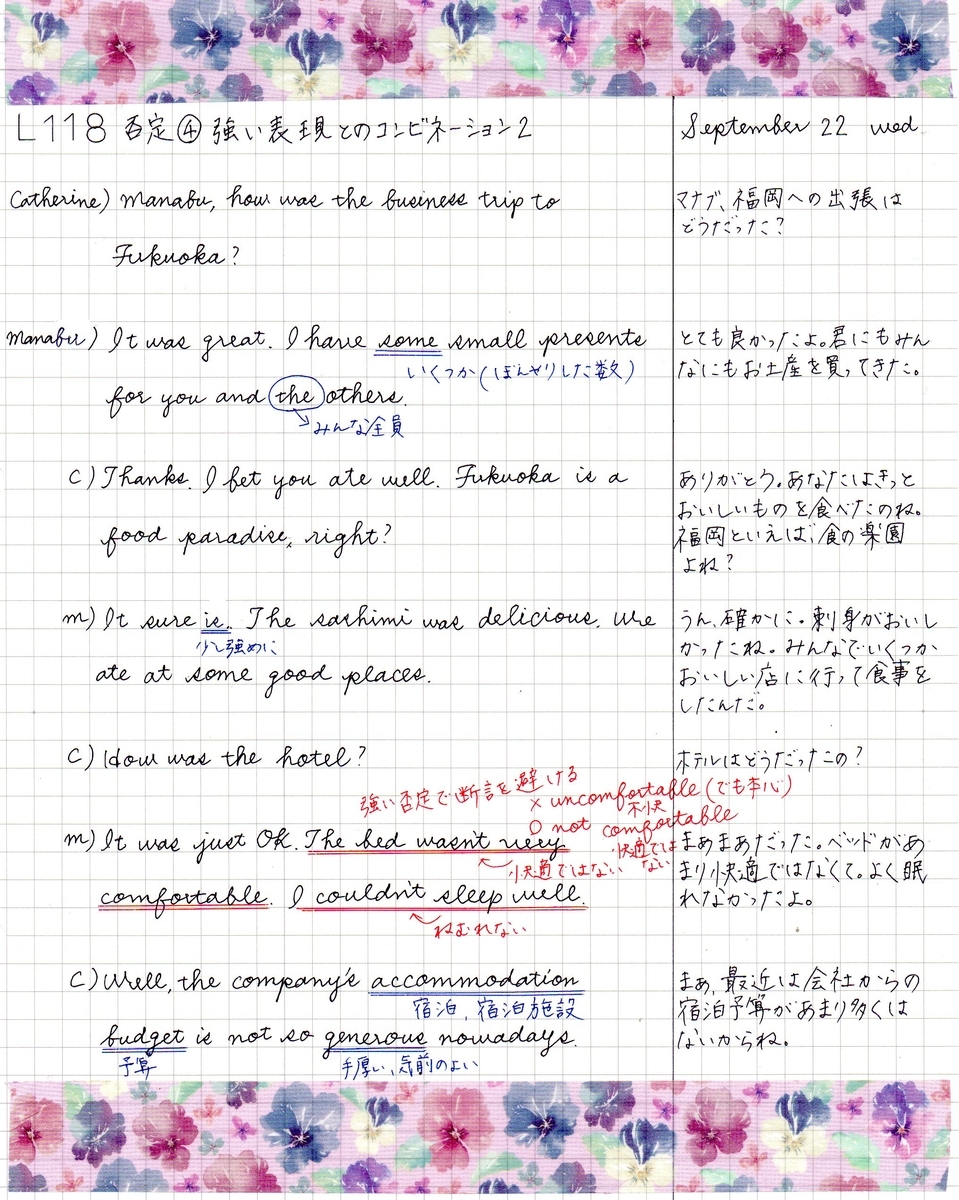 L118 否定④ 強い表現とのコンビネーション2
September 22 wed.
Catherine) Manabu, how was the business trip to
Fukuoka?
マナブ、福岡への出張は
どうだった?
Manabu) It was great. I have some small presents
いくつか(ぼんやりした数)
for you and the others.
みんな全員
とても良かったよ。君にもみん
なにもお土産を買ってきた。
C) Thanks. I bet you ate well. Fukuoka is a
food paradise, right?
ありがとう。あなたはきっと
おいしいものを食べたのね。
福岡といえば、食の楽園
よね?
M) It sure is. The sashimi was delicious. We
少し強めに
ate at some good places.
うん、確かに。刺身がおいし
かったね。みんなでいくつか
おいしい店に行って食事を
したんだ。
C) How was the hotel?
ホテルはどうだったの?
強い否定で断言を避ける
× uncomfortable (でも本心)
不快
○ not comfortable
快適では
ない
M) It was just OK. The bed wasn't very
快適ではない
comfortable. I couldn't sleep well.
ねむれない
まあまあだった。ベッドがあ
まり快適ではなくて。よく眠
れなかったよ。
C) Well, the company's accommodation
宿泊, 宿泊施設
budget is not so generous nowadays.
予算
手厚い、気前のよい
まあ、最近は会社からの
宿泊予算があまり多くは
ないからね。